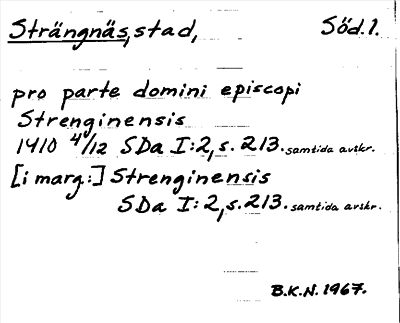 Strängnäs, stad, Söd.l.
pro parte domini episcopi
Strenginensis
1410 4/12 SDa I:2, s. 213. samtida avskr.
[i marg.:] Strenginensis
SDa I:2, s. 213. samtida avskr.
B.K.N. 1967.